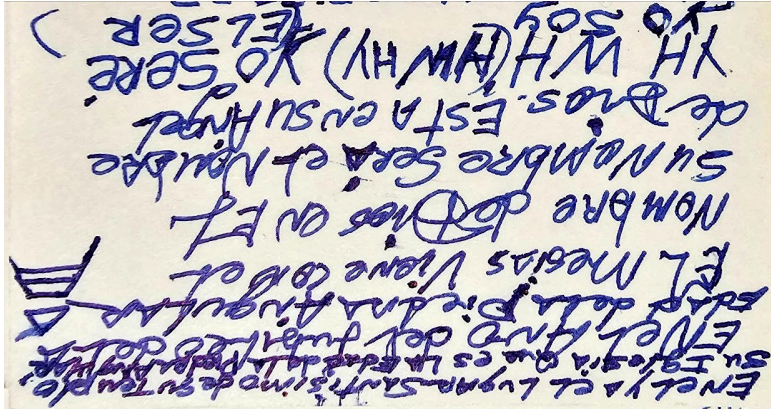 EN EL YA EL LUGAR SANTISIMO de su Templo:
Su IGLESIA Que es LA Edad de la Piedra ANGULAR
EN el AÑO del Jubileo de LA
Edad de la Piedra ANGULAR
EL Mesias Viene CON el
NOMBRE de Dios en EL
Su NOMBRE Será el NOMBRE
de Dios. ESTA en su Angel
YH WH (HWHY) YO SERE
YO SOY (EL SER